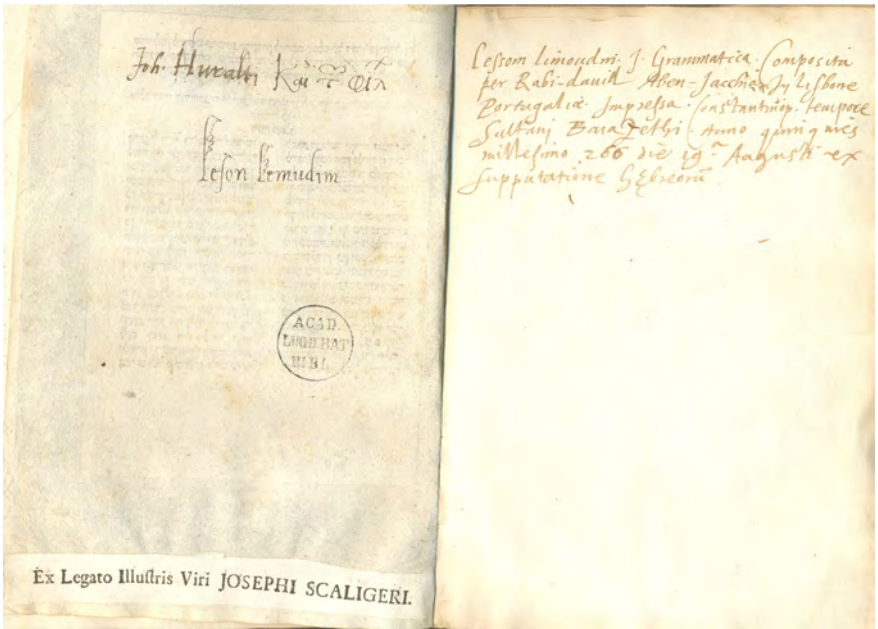 Joh. Huralti Καὶ τ̃ φιλ
Leson Lemudim
ACAD.
LUGD. BAT
BIBL.
Ex Legato Illuſtris Viri JOSEPHI SCALIGERI.
Leſſom limoudim. J. Grammatica. Compoſita
per Rabi-david Aben-Jacchia Lisbone
Portugaliæ. Impreſſa. Conſtantinop. tempore
Sultani Baiazethi. Anno quinquies
milleſimo 266 die 19ª Auguſti ex
ſupputatione Hębreorũ.